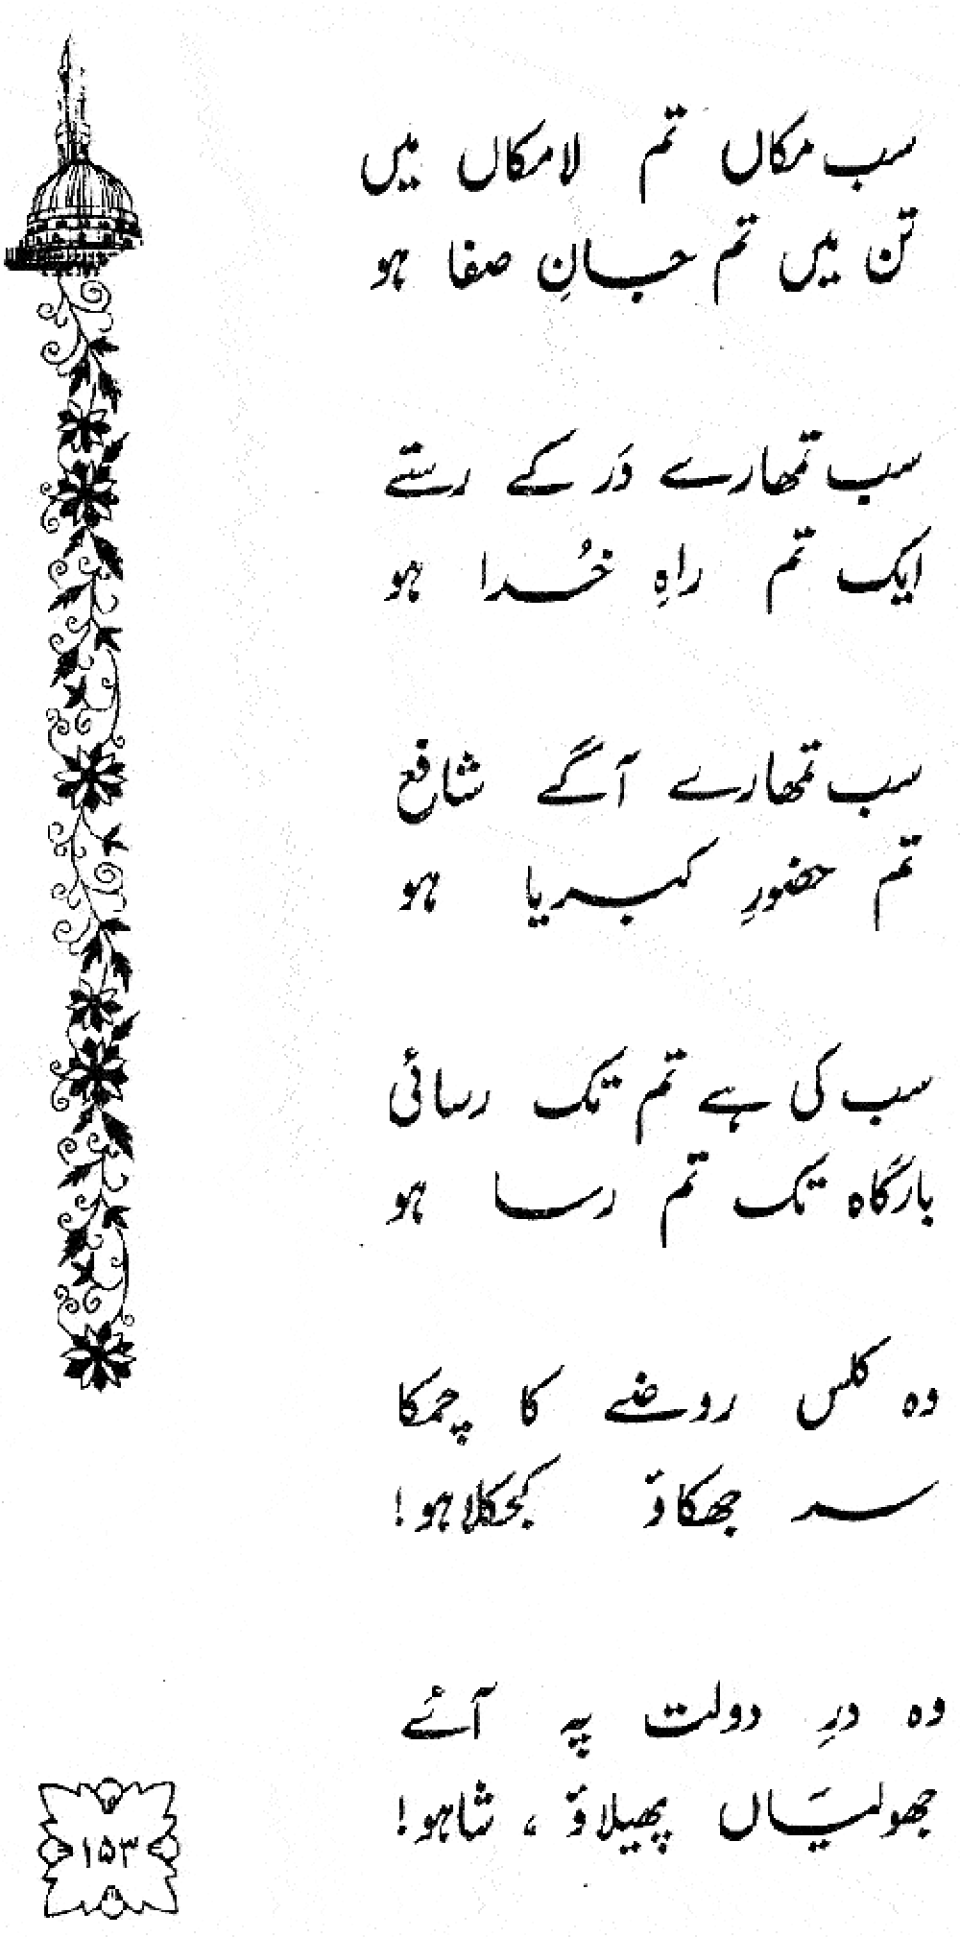 سب مکاں تم لامکاں میں
تن میں تم جانِ صفا ہو
سب تمھارے دَر کے رستے
ایک تم راہِ خُدا ہو
سب تمھارے آگے شافع
تم حضورِ کبریا ہو
سب کی ہے تم تک رسائی
بارگاہ تک تم رسا ہو
وہ کلس روضے کا چمکا
سر جھکاؤ کجکلاہو!
وہ درِ دولت پہ آئے
جھولیاں پھیلاؤ ، شاہو!
۱۵۳